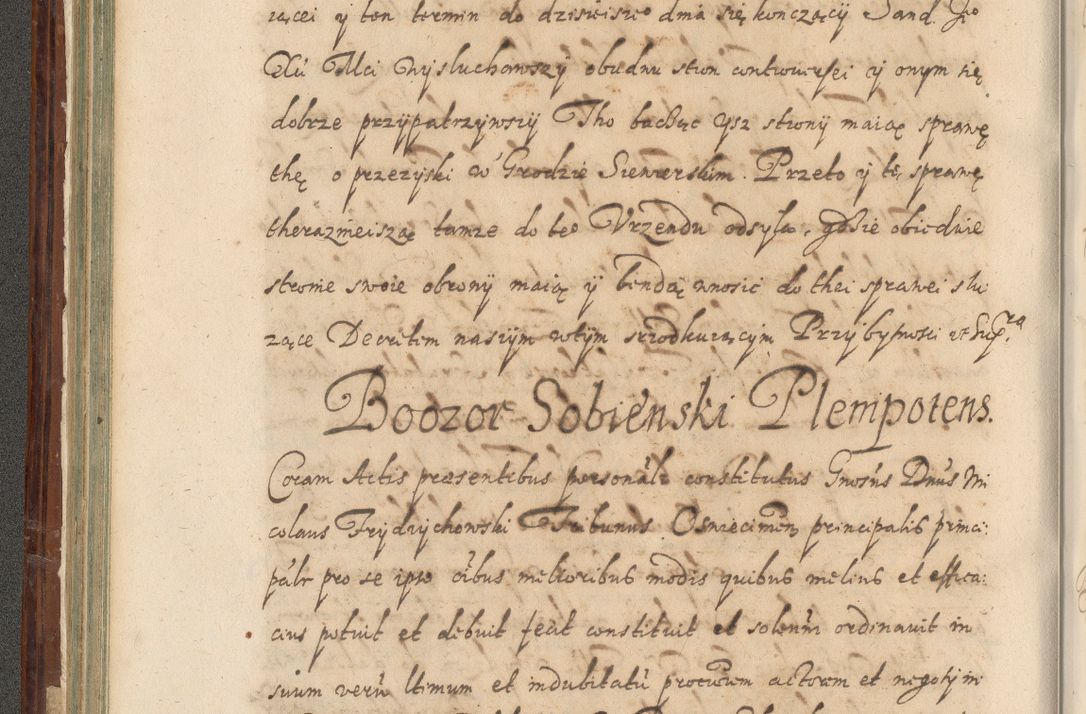 iącei y ten termin do dzisieiszeo dnia się kończący Sand. Jeo
Xū Mci wysłuchawszy obudwu stron controuersei y onym się
dobrze przypatrzywszy Tho bacząc ysz strony maią sprawę
thę o przezyski w Grodzie Siewierskim. Przeto y tę sprawę
therazmieiszą tamze do teo Vrzendu odsyła, gdzie obiedwie
stronie swoie obrony maią y bendą wnosic do thei sprawei słu:
zące Decretem naszym wtym srzodkuiącym Przybytnosci vt Supra
Boozor Sobienski Plempotens.
Coram Actis præsentibus personalr constitutus Gnosus Dnus Ni
colaus Frydrychowski Tribunus Osniecimen principalis princi:
palr pro se ipso oibus melioribus modis quibus melius et effica:
cius potuit et debuit fecit constituit et solenm ordinauit in
suum verū ltimum et indubitatū procurem actorem et negoty in